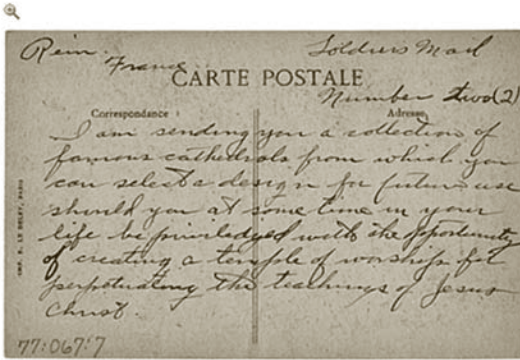 Reim. Soldiers Mail
France
CARTE POSTALE
Number two (2)
Correspondance Adresse
I am sending you a collection of
famous cathedrals from which you
can select a design for future use
should you at some time in your
life be priviledged with the opportunity
of creating a temple of worship for
perpetuating the teachings of Jesus
Christ.
IMP. E. LE DELEY, PARIS
77:067:7